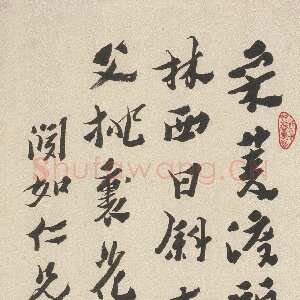 采菱渡頭
林西日斜
父桃裏花
閱如仁兄
Shufawang.cn